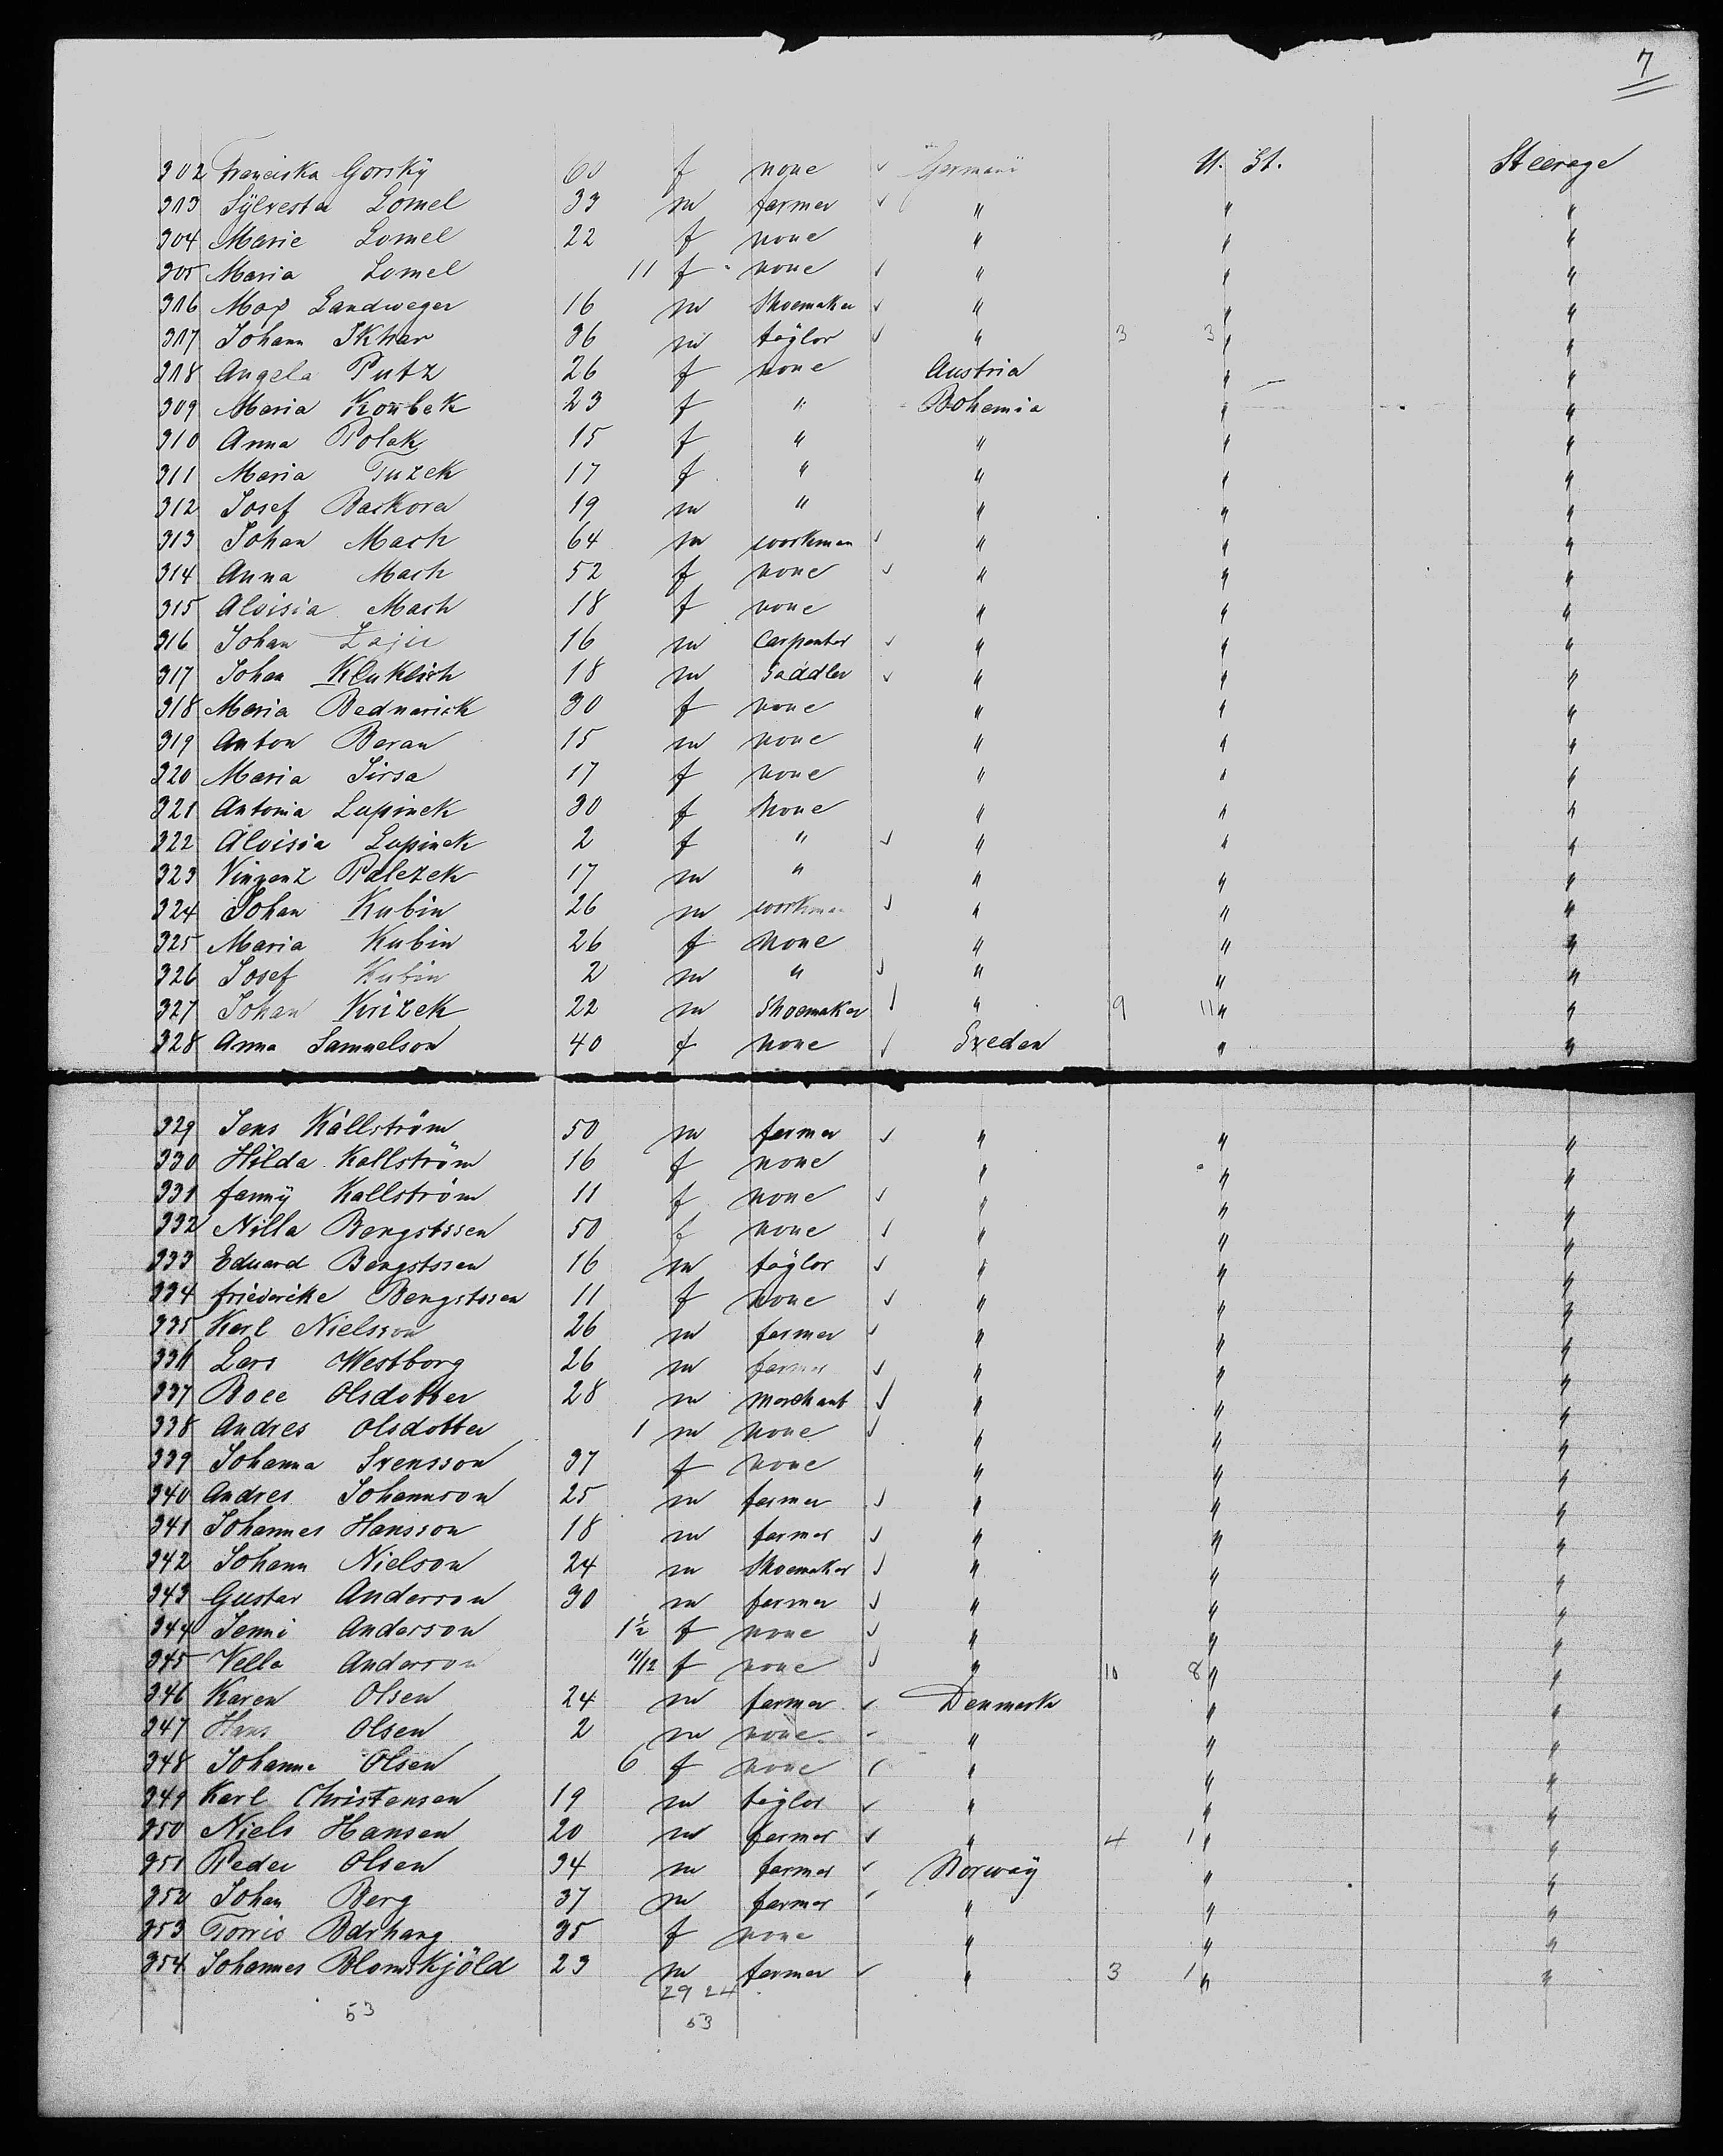 7
302 Franciska Gorskÿ 60 f none ✓ Germanÿ U. St. Steerage
303 Sÿlvesta Lomel 33 m farmer ✓ " " "
304 Marie Lomel 22 f none " " "
305 Maria Lomel 11 f none ✓ " " "
306 Max Landweger 16 m Shoemaker ✓ " " "
307 Johann Skhar 36 m taÿlor ✓ " 3 3 " "
308 Angela Putz 26 f none Austria " "
309 Maria Koubek 23 f " Bohemia " "
310 Anna Polak 15 f " " " "
311 Maria Tuzek 17 f " " " "
312 Josef Backora 19 m " " " "
313 Johan Mach 64 m workman ✓ " " "
314 Anna Mach 52 f none ✓ " " "
315 Aloisia Mach 18 f none " " "
316 Johan Zajic 16 m Carpenter ✓ " " "
317 Johan Klukisch 18 m Saddler ✓ " " "
318 Maria Bednarick 30 f none " " "
319 Anton Beran 15 m none " " "
320 Maria Jirsa 17 f none " " "
321 Antonia Lupinek 30 f None " " "
322 Aloisia Lupinek 2 f " ✓ " " "
323 Vinzenz Palezek 17 m " " " "
324 Johan Kubin 26 m workman ✓ " " "
325 Maria Kubin 26 f None " " "
326 Josef Kubin 2 m " ✓ " " "
327 Johan Krizek 22 m Shoemaker ✓ " 9 11 " "
328 Anna Samuelson 40 f None ✓ Sveden " "
329 Jens Källström 50 m farmer ✓ " " "
330 Hilda Kallström 16 f none " " "
331 fannÿ Kallström 11 f none ✓ " " "
332 Nilla Bengstssen 50 f none ✓ " " "
333 Eduard Bengstssen 16 m taÿlor ✓ " " "
334 friederike Bengstssen 11 f none ✓ " " "
335 Karl Nielsson 26 m farmer ✓ " " "
336 Lars Westborg 26 m farmer ✓ " " "
337 Boee Olsdotter 28 m Merchant ✓ " " "
338 Andres Olsdotter 1 m none ✓ " " "
339 Johanna Svensson 37 f none " " "
340 Andres Johannson 25 m farmer ✓ " " "
341 Johannes Hansson 18 m farmer ✓ " " "
342 Johann Nielson 24 m Shoemaker ✓ " " "
343 Gustav Anderson 30 m farmer ✓ " " "
344 Jenni Anderson 1½ f none ✓ " " "
345 Vella Anderson 11/12 f none ✓ " 10 8 " "
346 Karen Olsen 24 m farmer ✓ Denmark " "
347 Hans Olsen 2 m none - " " "
348 Johanne Olsen 6 f none ✓ " " "
349 Karl Christensen 19 m taÿlor ✓ " " "
350 Niels Hansen 20 m farmer ✓ " 4 1 " "
351 Peder Olsen 34 m farmer ✓ Norwaÿ " "
352 Johan Berg 37 m farmer ✓ " " "
353 Torris Barhang 35 f none " " "
354 Johannes Blomskjöld 23 m farmer ✓ " 3 1 " "
29 24
53 53